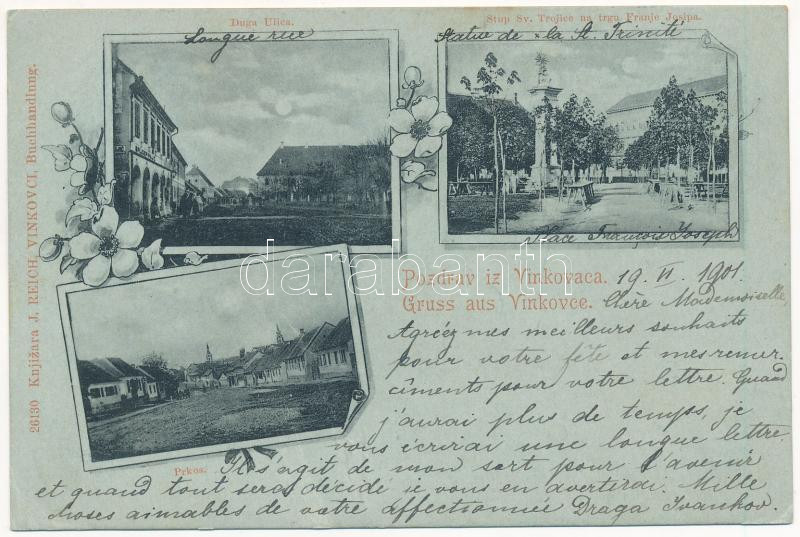 Duga Ulica.
Longue rue
Stup Sv. Trojice na trgu Franje Josipa.
Statue de la St. Trinité
Place François Joseph
26130 Knjižara J. REICH, VINKOVCI, Buchhandlung.
darabanth
Pozdrav iz Vinkovaca. 19. VI. 1901.
Gruss aus Vinkovce. Chère Mademoiselle,
Agréez mes meilleurs souhaits
pour votre fête et mes remer-
cîments pour votre lettre. Quand
j'aurai plus de temps, je
vous écrirai une longue lettre.
Prkos. Il s'agit de mon sort pour l'avenir
et quand tout sera décidé je vous en avertirai. Mille
choses aimables de votre affectionnée Draga Ivankov.